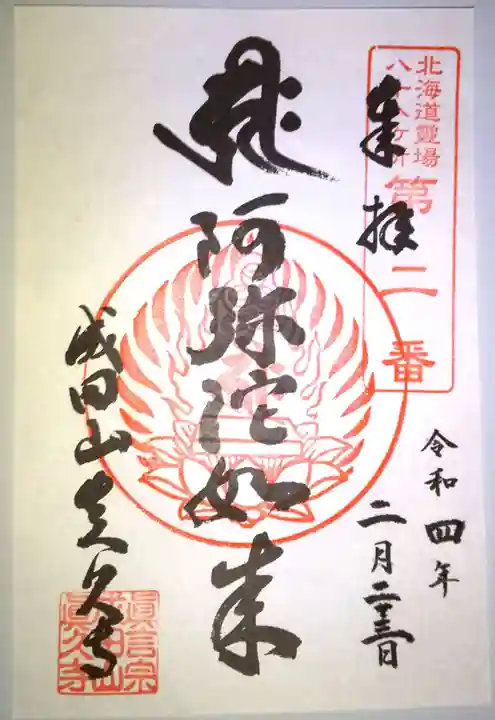 北海道霊場
八十八ヶ所
第二番
奉拝
令和四年
二月二十三日
阿弥陀如来
成田山真久寺
眞言宗
成田山
眞久寺